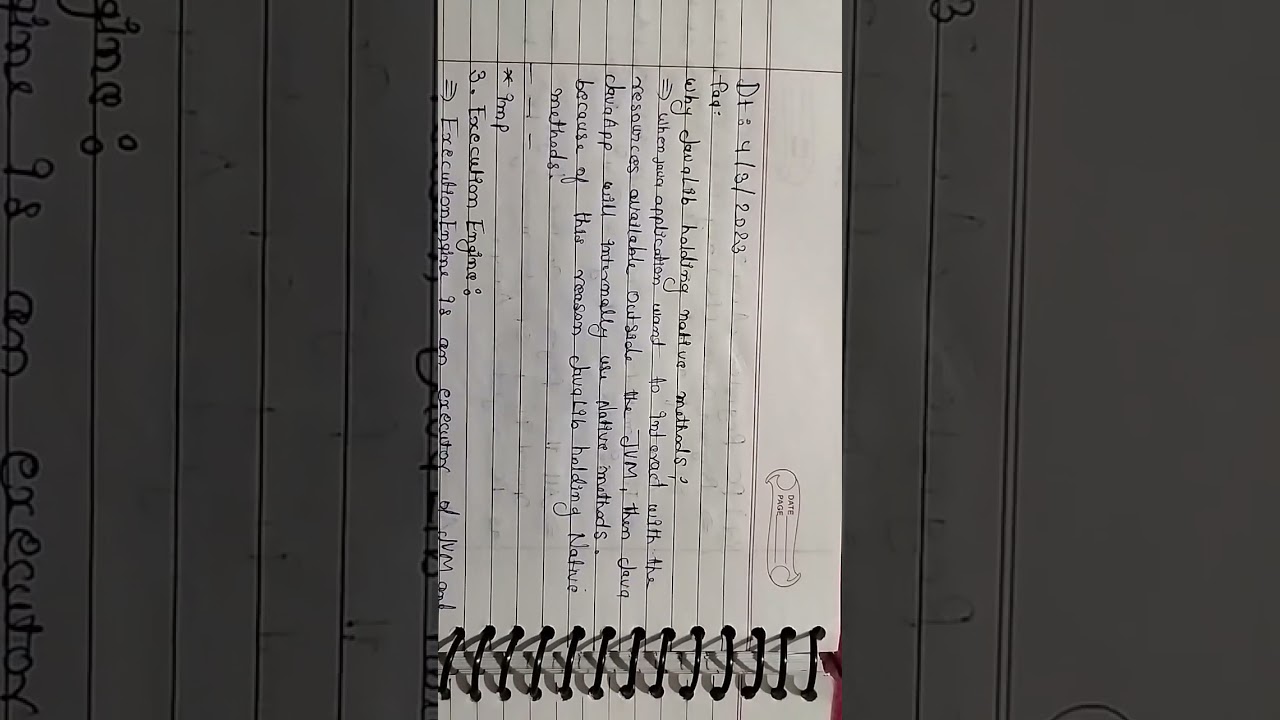 DATE
PAGE
Dt: 4/3/2023
faq:
Why JavaLib holding native methods?
⇒ when java application want to interact with the
resources available outside the JVM, then Java
JavaApp will internally use Native methods.
because of this reason JavaLib holding Native
methods.
- - -
* Imp
3. Execution Engine:
⇒ ExecutionEngine is an executor of JVM and